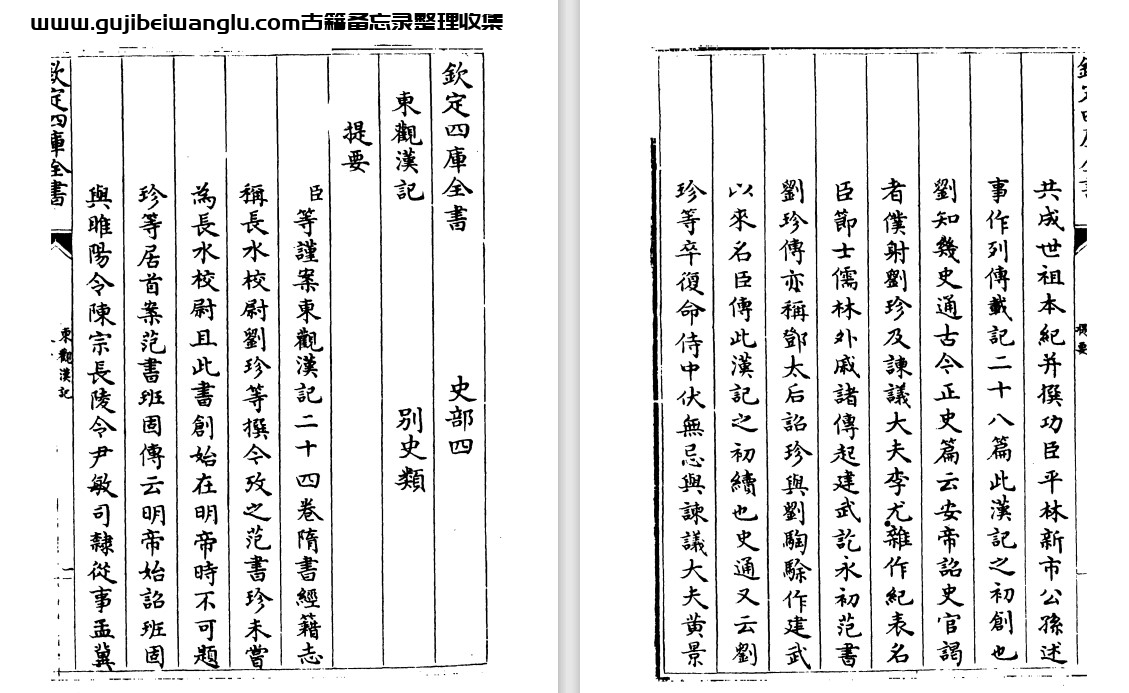 www.gujibeiwanglu.com古籍备忘录整理收集
欽定四庫全書 史部四
東觀漢記 别史類
提要
臣等謹案東觀漢記二十四卷隋書經籍志
稱長水校尉劉珍等撰今攷之范書珍未嘗
為長水校尉且此書創始在明帝時不可題
珍等居首案范書班固傳云明帝始詔班固
與睢陽令陳宗長陵令尹敏司隸從事孟冀
欽定四庫全書
東觀漢記
一
欽定四庫全書
提要
共成世祖本紀并撰功臣平林新市公孫述
事作列傳載記二十八篇此漢記之初創也
劉知幾史通古今正史篇云安帝詔史官謁
者僕射劉珍及諫議大夫李尤雜作紀表名
臣節士儒林外戚諸傳起建武訖永初范書
劉珍傳亦稱鄧太后詔珍與劉騊駼作建武
以來名臣傳此漢記之初續也史通又云劉
珍等卒復命侍中伏無忌與諫議大夫黄景